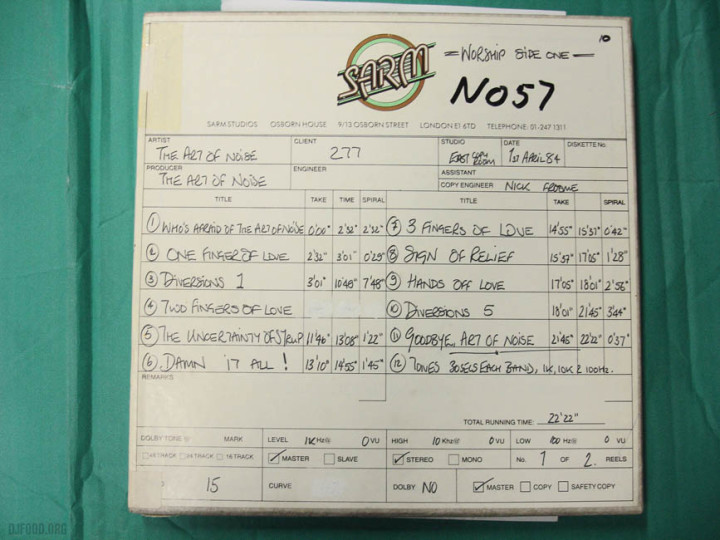 10
SARM
= WORSHIP SIDE ONE =
NO57
SARM STUDIOS OSBORN HOUSE 9/13 OSBORN STREET LONDON E1 6TD TELEPHONE: 01-247 1311
ARTIST CLIENT STUDIO DATE DISKETTE No
THE ART OF NOISE 277 EAST COPY ROOM 1ST APRIL 84
PRODUCER ENGINEER ASSISTANT
THE ART OF NOISE COPY ENGINEER NICK FROOME
TITLE TAKE TIME SPIRAL TITLE TAKE SPIRAL
① WHO'S AFRAID OF THE ART OF NOISE 0'00" 2'32" 2'32" ⑦ 3 FINGERS OF LOVE 14'55" 15'37" 0'42"
② ONE FINGER OF LOVE 2'32" 3'01" 0'29" ⑧ SIGN OF RELIEF 15'37" 17'05" 1'28"
③ DIVERSIONS 1 3'01" 10'49" 7'48" ⑨ HANDS OFF LOVE 17'05" 18'01" 2'56"
④ TWO FINGERS OF LOVE ⑩ DIVERSIONS 5 18'01" 21'45" 3'44"
⑤ THE UNCERTAINTY OF SYRUP 11'46" 13'08" 1'22" ⑪ GOODBYE, ART OF NOISE 21'45" 22'22" 0'37"
⑥ DAMN IT ALL! 13'10" 14'55" 1'45" ⑫ TONES 30SECS EACH BAND, 1K, 10K & 100Hz.
REMARKS
TOTAL RUNNING TIME: 22'22"
DOLBY TONE @ MARK LEVEL 1K Hz@ 0 VU HIGH 10 Khz@ 0 VU LOW 100 Hz@ 0 VU
24 TRACK 16 TRACK MASTER SLAVE STEREO MONO No. 1 OF 2 REELS
15 CURVE DOLBY NO MASTER COPY SAFETY COPY
DJFOOD.ORG